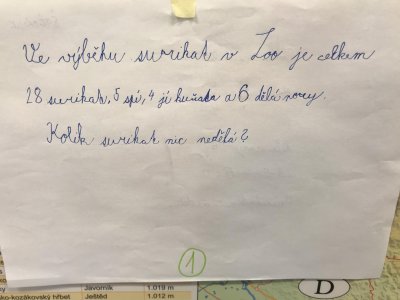 Ve výběhu surikat v Zoo je celkem
28 surikat, 5 spí, 4 jí kuňata a 6 dělá nory.
Kolik surikat nic nedělá?
1
ky
Javorník
1.019 m
ko-kozákovský hřbet
Ještěd
1.012 m
D